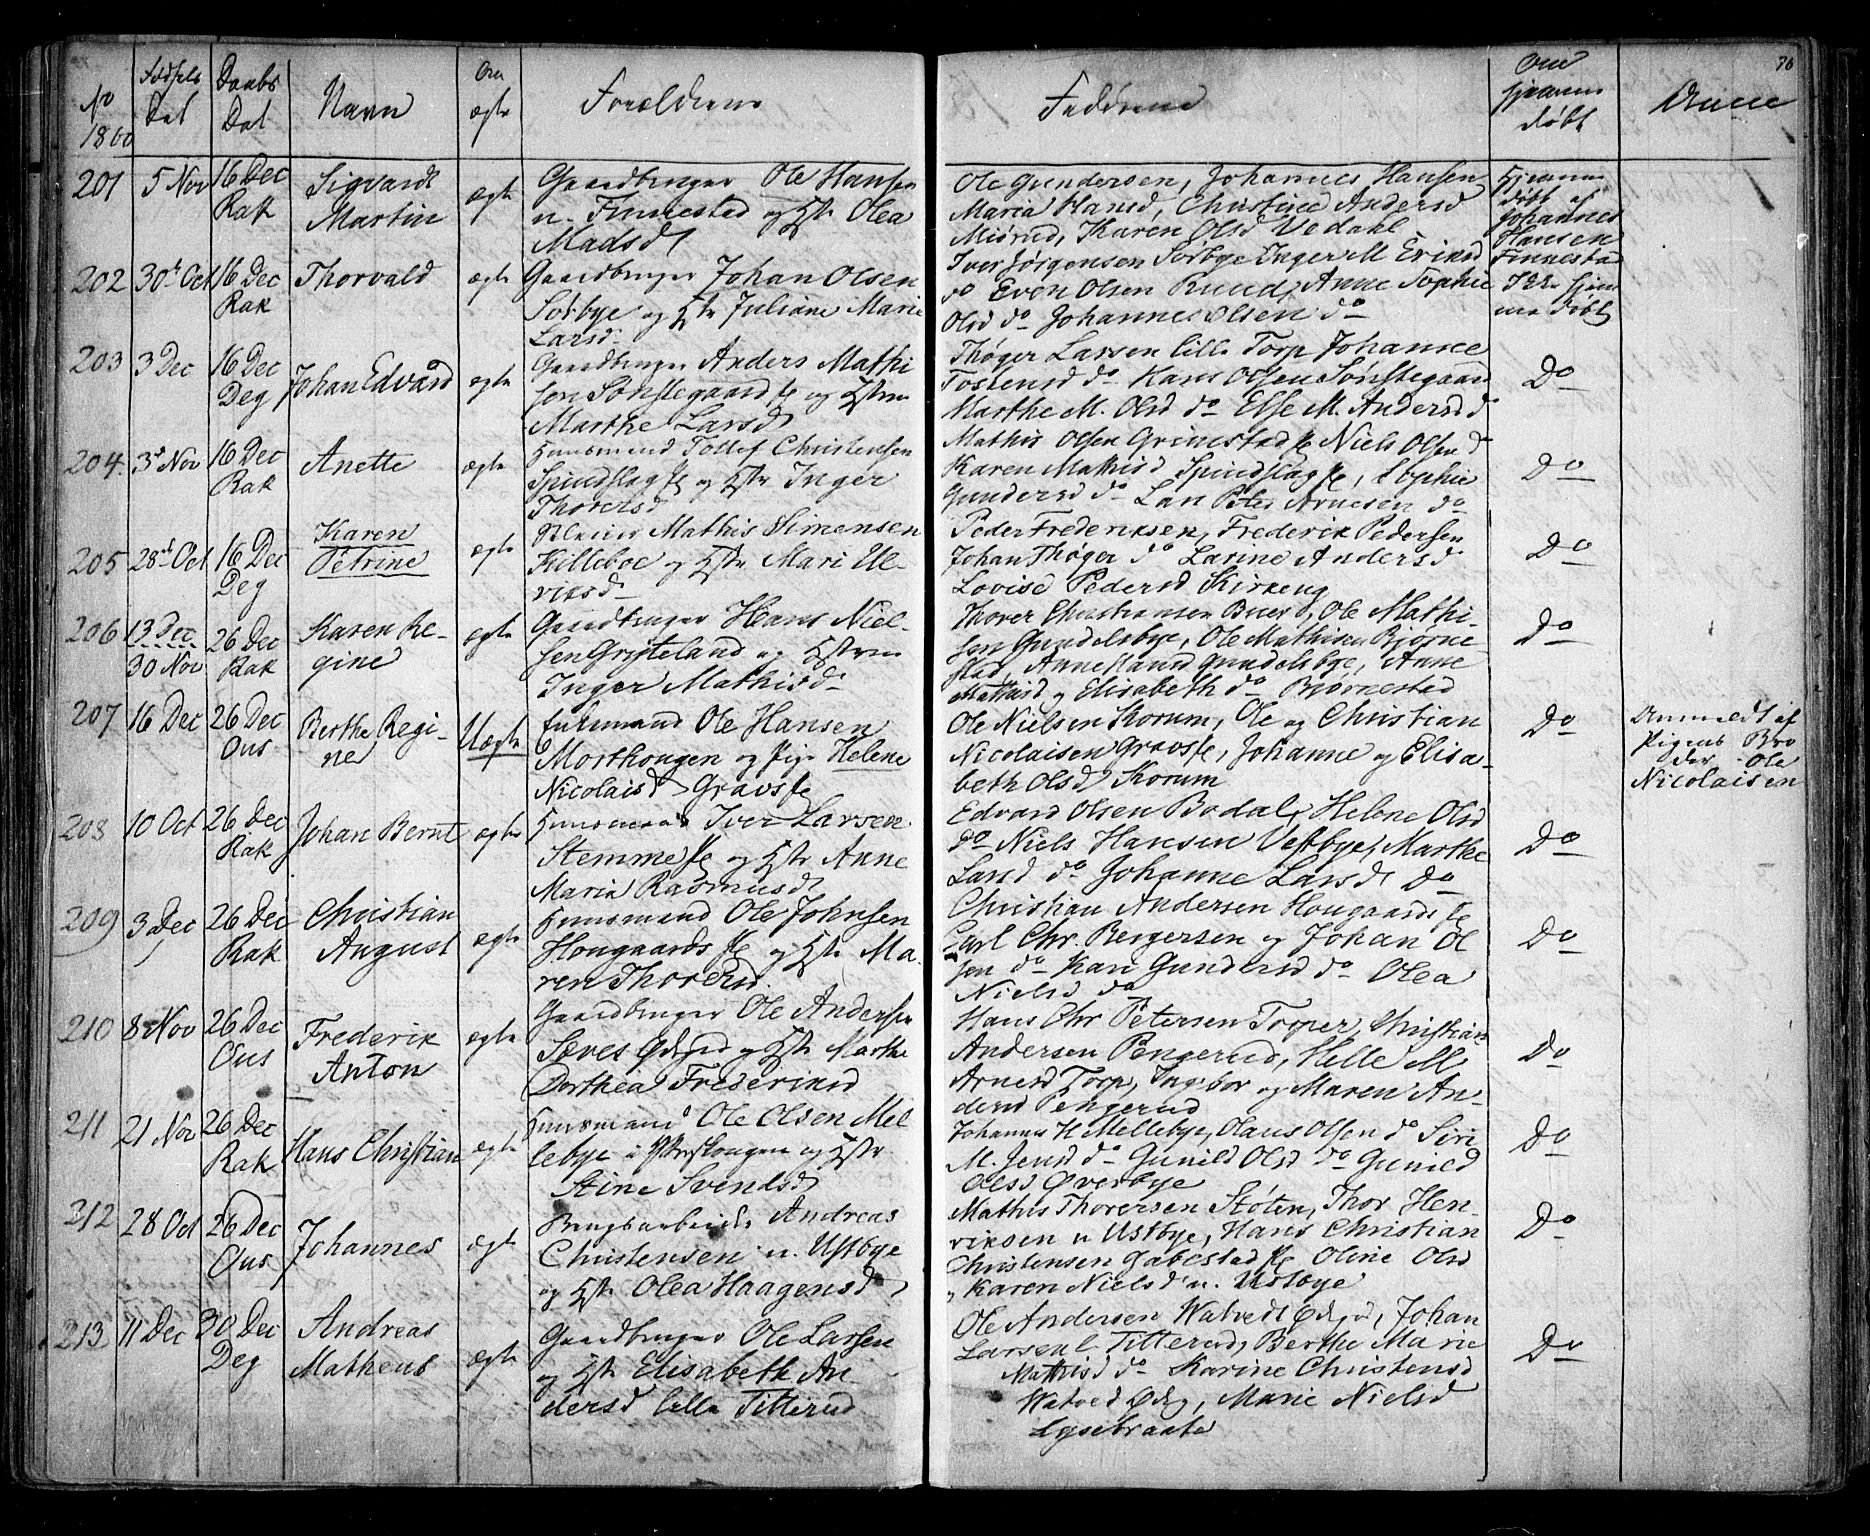 No 1860
Fødsels Dat
Daabs Dat
Navn
Om ægte
Forældrene
Fadderne
Om hjemme døbt
Anm
76
201 5 Nov 16 Dec Rak
Sigvardt Martin
ægte
Gaardbruger Ole Hansen
n. Finnestad og Hstr Olea
Madsd
Ole Gundersen, Johannes Hansen
Maria Hansd, Christine Andersd
Miørud, Karen Olsd Vedahl
Hjemme døbt af Johannes Hansen Finnestad
202 30t Oct 16 Dec Rak
Thorvald
ægte
Gaardbruger Johan Olsen
Solbye og Hstr Juliane Marie
Larsd
Iver Jørgensen Solbye Inger M Eriksd
do Even Olsen Ruud, Anne Sophie
Olsd do Johannes Olsen do
Ikke hjemme døbt
203 3 Dec 16 Dec Deg
Johan Edvard
ægte
Gaardbruger Anders Mathi
sen Sønstegaard og Hstru
Marthe Larsd
Thøger Larsen lille Torp Johanne
Tostensd do Hans Olsen Sønstegaard
Marthe M. Olsd do Else M. Andersd d
Do
204. 3d Nov 16 Dec Rak
Anette
ægte
Huusmand Tollef Christensen
Spindslag og Hstr Inger
Thorersd
Mathis Olsen Grimestad Niels Olsen d
Karen Mathisd Spindslag, Sophie
Gundersd do Lars Peter Arnesen do
Do
205 28d Oct 16 Dec Deg
Karen Petrine
ægte
Mathis Simensen
Killeboe og Hstr Mari Ul-
riksd
Peder Frederiksen, Frederik Pedersen
Johan Thøger do Larine Andersd
Lovise Pedersd Kirkeng
Do
206 13 Dec 30 Nov 26 Dec Rak
Karen Re-
gine
ægte
Gaardbruger Hans Niel-
sen Gryteland og Hstru
Inger Mathisd
Thorer Christiansen Buer, Ole Mathi-
sen Gundelsbye, Ole Mathisen Bjørne
stad, Anne Hansd Gundelsbye, Anne
Mathisd og Elisabeth do Bjørnestad
Do
207 16 Dec 26 Dec Ous
Berthe Regi-
ne
Uægte
Ole Hansen
Morthougen og Pige Helene
Nicolaisd Gravs
Ole Nielsen Korum, Ole og Christian
Nicolaisen Gravs, Johanne og Elisa-
beth Olsd Korum
Do
Anmeldt af
Pigens Bro
der Ole
Nicolaisen
208 10 Oct 26 Dec Rak
Johan Bernt
ægte
Huusmand Iver Larsen
Stemme og Hstr Anne
Maria Rasmusd
Edvard Olsen Bodal, Helene Olsd
do Niels Hansen Vestbye, Marthe
Larsd do Johanne Larsd Do
Do
209 3 Dec 26 Dec Rak
Christian
August
ægte
Huusmand Ole Johnsen
Hougaards og Hstr Ma-
ren Thorersd.
Christian Andersen Hougaards
Carl Chr. Bergersen og Johan Ol
sen do Kari Gundersd do Olea
Nielsd do
Do
210 8 Nov 26 Dec Ous
Frederik
Anton
ægte
Gaardbruger Ole Andersen
og Hstr Marthe
Dorthea Frederiksd
Hans Chr Petersen Torper, Christian
Andersen Pengerud, Helle M
Arnesd Torp, Ingebor og Maren An-
dersd Pengerud
Do
211 21 Nov 26 Dec Rak
Hans Christian
ægte
Huusmand Ole Olsen Mel
lebye i og Hstr
Stine Svendsd
Johannes H Mellebye, Olaus Olsen do Siri
M. Jensd do Gunild Olsd do Gunild
Olsd Øverbye
Do
212 28 Oct 26 Dec Ous
Johannes
ægte
Brugsarbeider Andreas
Christensen n. Ustbye
og Hstr Olea Haagensd
Mathis Thorersen Støten, Thor Hen-
riksen n Ustbye, Hans Christian
Christensen Gabestad Oline Olsd
, Karen Nielsd n. Ustbye
Do
213 11 Dec 30 Dec Deg
Andreas
Matheus
ægte
Gaardbruger Ole Larsen
og Hstr Elisabeth An-
dersd lille Titterud
Ole Andersen Watvedt Ødegd, Johan
Larsen l. Titterud, Berthe Marie
Mathisd do Karine Christensd
Watved Ødeg, Marie Nielsd
Lysebraate
Do